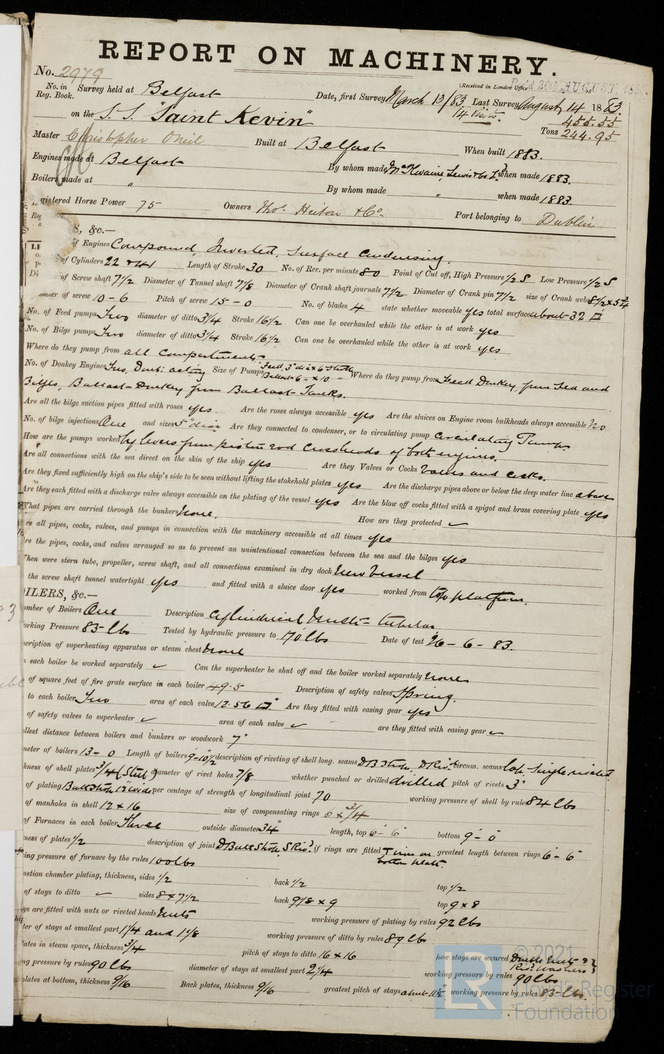 REPORT ON MACHINERY.
No. 2979
(Received in London Office 20 AUGUST, 188
No. in Reg. Book. Survey held at Belfast Date, first Survey March 13/83 Last Survey August 14 1883
on the S.S. "Saint Kevin" 455.55
Tons 244.95
Master Christopher O'Neil Built at Belfast When built 1883.
Engines made at Belfast By whom made McIlwaine Lewis & Co Ld when made 1883.
Boilers made at " By whom made " when made 1883.
gistered Horse Power 75 Owners Thos. Heiton & Co. Port belonging to Dublin
S, &c.—
of Engines Compound, Inverted, Surface Condensing.
of Cylinders 22 & 41 Length of Stroke 30 No. of Rev. per minute 80 Point of Cut off, High Pressure 1/2 S Low Pressure 1/2 S
of Screw shaft 7 1/2 Diameter of Tunnel shaft 7 1/8 Diameter of Crank shaft journals 7 1/2 Diameter of Crank pin 7 1/2 size of Crank webs 8 1/2 x 5 1/4
of screw 10-6 Pitch of screw 15-0 No. of blades 4 state whether moveable yes total surface about 32 □'
No. of Feed pumps Two diameter of ditto 3 1/4 Stroke 16 1/2 Can one be overhauled while the other is at work yes
No. of Bilge pumps Two diameter of ditto 3 1/4 Stroke 16 1/2 Can one be overhauled while the other is at work yes
Where do they pump from all compartments
No. of Donkey Engines Two, Doub. acting Size of Pumps Feed, 3" dia x 6 Stroke Ballast 6 x 10 Where do they pump from Feed Donkey, from Sea and
Bilges, Ballast-Donkey from Ballast Tanks.
Are all the bilge suction pipes fitted with roses yes Are the roses always accessible yes Are the sluices on Engine room bulkheads always accessible no
No. of bilge injections One and sizes 5" dia Are they connected to condenser, or to circulating pump Circulating Pump.
How are the pumps worked by levers from piston rod crossheads of both engines.
Are all connections with the sea direct on the skin of the ship yes Are they Valves or Cocks Valves and cocks.
Are they fixed sufficiently high on the ship's side to be seen without lifting the stokehold plates yes Are the discharge pipes above or below the deep water line above
Are they each fitted with a discharge valve always accessible on the plating of the vessel yes Are the blow off cocks fitted with a spigot and brass covering plate yes
What pipes are carried through the bunkers None. How are they protected ✓
re all pipes, cocks, valves, and pumps in connection with the machinery accessible at all times yes
re the pipes, cocks, and valves arranged so as to prevent an unintentional connection between the sea and the bilges yes
When were stern tube, propeller, screw shaft, and all connections examined in dry dock New Vessel
the screw shaft tunnel watertight yes and fitted with a sluice door yes worked from top platform.
OILERS, &c.—
umber of Boilers One Description Cylindrical Multi-tubular
orking Pressure 83-lbs Tested by hydraulic pressure to 170 lbs Date of test 26-6-83.
scription of superheating apparatus or steam chest None
each boiler be worked separately ✓ Can the superheater be shut off and the boiler worked separately None
of square feet of fire grate surface in each boiler 49.5 Description of safety valves Spring.
to each boiler Two area of each valve 12.56 □" Are they fitted with easing gear yes
of safety valves to superheater ✓ area of each valve ✓ are they fitted with easing gear ✓
llest distance between boilers and bunkers or woodwork 7"
meter of boilers 13-0 Length of boilers 9-10 1/2 description of riveting of shell long. seams D B Strap, D Rivd circum. seams lap, single riveted
kness of shell plates 3/4 (Steel) diameter of rivet holes 7/8 whether punched or drilled drilled pitch of rivets 3"
of plating Butt Straps 12 wide per centage of strength of longitudinal joint 70 working pressure of shell by rules 84 lbs
of manholes in shell 12 x 16 size of compensating rings 6 x 3/4
of Furnaces in each boiler Three outside diameter 34" length, top 6'-6" bottom 9'-0"
ness of plates 1/2 description of joint D Butt Strap, S Rivd if rings are fitted T irons on bottom plate greatest length between rings 6'-6"
ing pressure of furnace by the rules 100 lbs
ustion chamber plating, thickness, sides 1/2 back 1/2 top 1/2
of stays to ditto ✓ sides 8 x 7 1/2 back 9 1/8 x 9 top 9 x 8
ys are fitted with nuts or riveted heads Nuts working pressure of plating by rules 92 lbs
ter of stays at smallest part 1 1/4 and 1 1/8 working pressure of ditto by rules 89 lbs
lates in steam space, thickness 3/4 pitch of stays to ditto 16 x 16 how stays are secured Double Nuts & Rivd Washers
ng pressure by rules 90 lbs diameter of stays at smallest part 2 1/4 working pressure by rules 90 lbs
plates at bottom, thickness 9/16 Back plates, thickness 9/16 greatest pitch of stays about 11 1/2 working pressure by rules 83-lbs.
© 2021
LR
Lloyd's Register
Foundation